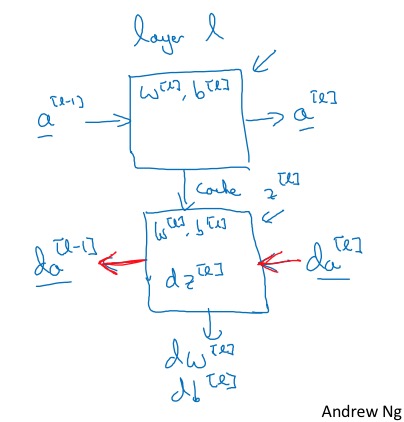 layer l
w^[l], b^[l]
a^[l-1]
a^[l]
cache z^[l]
w^[l], b^[l]
da^[l-1]
dz^[l]
da^[l]
dw^[l]
db^[l]
Andrew Ng